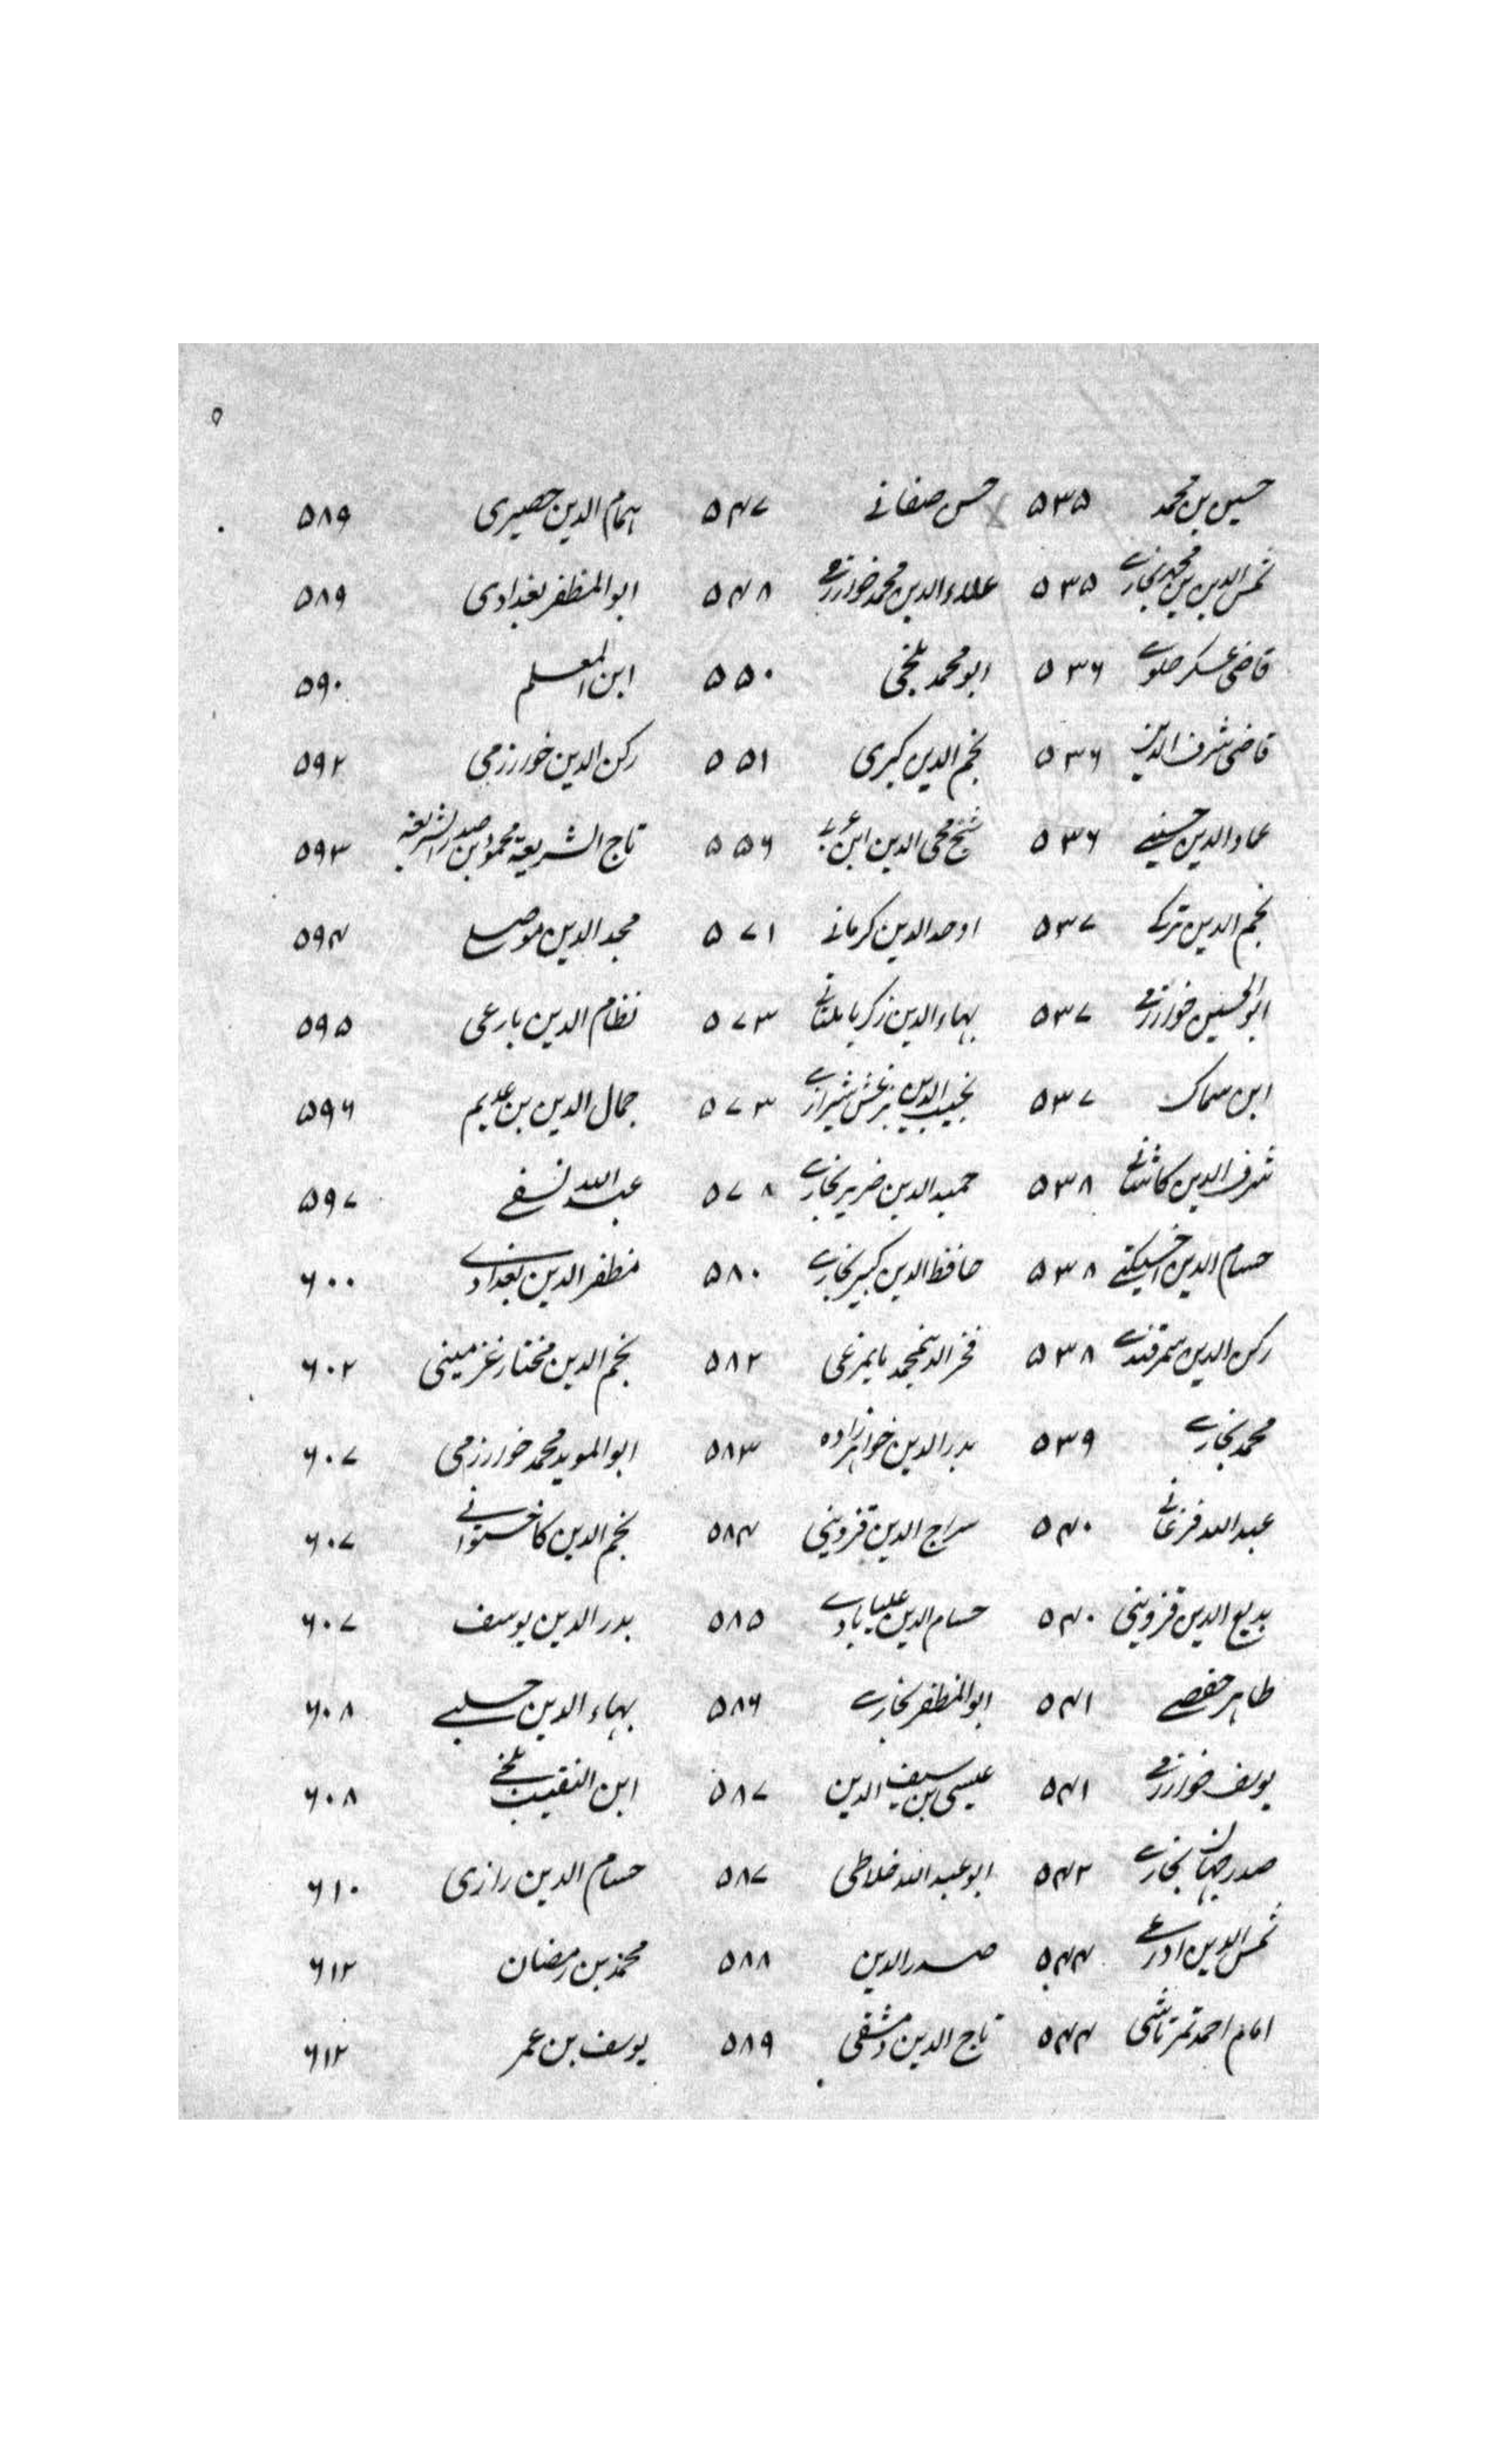 ۵
حسین بن محمد ۵۳۵ حسن صغانے ۵۴۷ ہمام الدین حصیری ۵۸۹
شمس الدین بن محمد بخارے ۵۳۵ علاء الدین محمد خوارزمے ۵۴۸ ابو المظفر بغدادی ۵۸۹
قاضی عسکر حلوے ۵۳۶ ابو محمد بلخی ۵۵۰ ابن المعلم ۵۹۰
قاضی شرف الدین ۵۳۶ نجم الدین کبری ۵۵۱ رکن الدین خوارزمی ۵۹۲
عماد الدین حسینے ۵۳۶ شیخ محی الدین ابن عربے ۵۵۶ تاج الشریعۃ محمود بن صدر الشریعۃ ۵۹۳
نجم الدین ترکے ۵۳۷ اوحد الدین کرمانے ۵۷۱ مجد الدین موصلے ۵۹۴
ابو الحسین خوارزمے ۵۳۷ بہاء الدین زکریا ملتانے ۵۷۳ نظام الدین بارعی ۵۹۵
ابن سماک ۵۳۷ نجیب الدین بزغش شیرازے ۵۷۳ جمال الدین بن عدیم ۵۹۶
شرف الدین کاشانے ۵۳۸ حمید الدین ضریر بخارے ۵۷۸ عبد اللہ نسفے ۵۹۷
حسام الدین اخسیکتے ۵۳۸ حافظ الدین کبیر بخارے ۵۸۰ مظفر الدین بغدادے ۶۰۰
رکن الدین سمرقندے ۵۳۸ فخر الدین محمد مایمرغی ۵۸۲ نجم الدین مختار غزمینی ۶۰۲
محمد بخارے ۵۳۹ بدر الدین خواہر زادہ ۵۸۳ ابو الموید محمد خوارزمی ۶۰۷
عبد اللہ فرغانے ۵۴۰ سراج الدین قزوینی ۵۸۴ نجم الدین کاخستوانے ۶۰۷
بدیع الدین قزوینی ۵۴۰ حسام الدین علیابادے ۵۸۵ بدر الدین یوسف ۶۰۷
طاہر حفصے ۵۴۱ ابو المظفر بخارے ۵۸۶ بہاء الدین حلبے ۶۰۸
یوسف خوارزمے ۵۴۱ عیسی بن سیف الدین ۵۸۷ ابن النقیب بلخے ۶۰۸
صدر جہان بخارے ۵۴۲ ابو عبد اللہ خلاطی ۵۸۷ حسام الدین رازی ۶۱۰
شمس الدین ادرعے ۵۴۴ صدر الدین ۵۸۸ محمد بن رمضان ۶۱۲
امام احمد تمرتاشی ۵۴۴ تاج الدین دمشقی ۵۸۹ یوسف بن عمر ۶۱۲